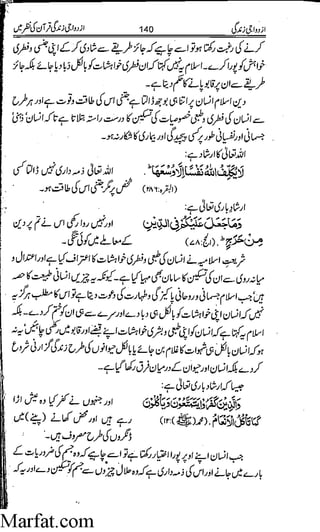 ازدواجی زندگی 140 ازدواجی زندگی قرآن کی نظر میں
کرنے کی رغبت رکھتا ہو تو اسے چاہیے کہ جائز طریقے سے شادی کر کے اپنی جنسی و فطری
خواہش کو پورا کرے۔ اسلام یہ نہیں کہتا کہ ان فطری خواہشات کو بالکل دبا دیا جائے بلکہ جائز
طریقے سے ان پر قابو پانے کا حکم دیتا ہے۔
دین اسلام انسان پر اتنا ہی بوجھ ڈالتا ہے جتنی اس کی طاقت و قوت ہے اور ہر طرح
سے انسان کی فطری و طبعی خصوصیات کی تسکین کا درست راستہ بتلاتا ہے تاکہ انسان ذہنی
جسمانی اور نفسیاتی طور پر کسی پیچیدگی اور بیماری کا شکار نہ ہو۔
اللہ تعالیٰ کا ارشاد ہے:
لَا يُكَلِّفُ اللّٰهُ نَفْسًا اِلَّا وُسْعَهَا اللہ تعالیٰ ذمہ داری نہیں ڈالتا کسی
(البقرہ:۲۸۶) شخص پر مگر جتنی اس کی طاقت ہو۔
ارشاد باری تعالیٰ ہے:
وَمَا جَعَلَ عَلَيْكُمْ فِى الدِّيْنِ اور نہیں روا رکھی اس نے تم پر دین
مِنْ حَرَجٍ (الحج:۷۸) کے معاملے میں کوئی تنگی۔
شریعت اسلامیہ نے انسان کی طبعی و فطری خواہشات کا اعتراف کیا ہے اور اعتدال و
میانہ روی سے ان کی تسکین کا سامان بھی مہیا کیا ہے۔ کیونکہ یہ چیزیں انسانی طبیعت کا حصہ
ہیں جب اسلام جسمانی و روحانی پاکیزگی و طہارت کی دعوت دیتا ہے تو اس کا مطلب ہرگز یہ
نہیں کہ انسان اپنی خواہشات کو بالکل ہی دبا دے اور سرے سے ہی ان کو ختم کر دے۔ بلکہ
اسلام یہ کہتا ہے کہ انسان کو اپنی طبعی و بشری خواہشات اپنے قبضے اور قابو میں رکھنی چاہئیں یہ نہ
ہو کہ انسان بالکل ہی شہوات کا غلام بن جائے یا بالکل حیوانوں کی طرح زندگی گزارنی شروع
کر دے بلکہ انسان اور حیوان کے درمیان فرق رکھا گیا ہے۔
جیسا کہ ارشاد باری تعالیٰ ہے:
وَالَّذِيْنَ كَفَرُوْا يَتَمَتَّعُوْنَ وَيَاْكُلُوْنَ اور جنہوں نے کفر کیا وہ عیش اڑا
كَمَا تَاْكُلُ الْاَنْعَامُ (محمد:۱۲) رہے ہیں اور محض کھانے (پینے) میں
ڈنگروں کی طرح مصروف ہیں۔
جب انسان اپنے اوپر پورا اختیار رکھتا ہے تو اسے چاہیے کہ وہ جسم کی ضروریات کے
بارے میں جانے اور اس کی ذمہ داری ہے کہ وہ حلال چیزوں سے جسم کو تسکین دے اور یہ کہ
Marfat.com